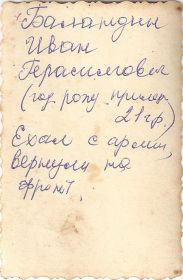 Баландин
Иван
Герасимович
(год рожд. пример
21 гр.)
Ехал с армии,
вернули на
фронт.